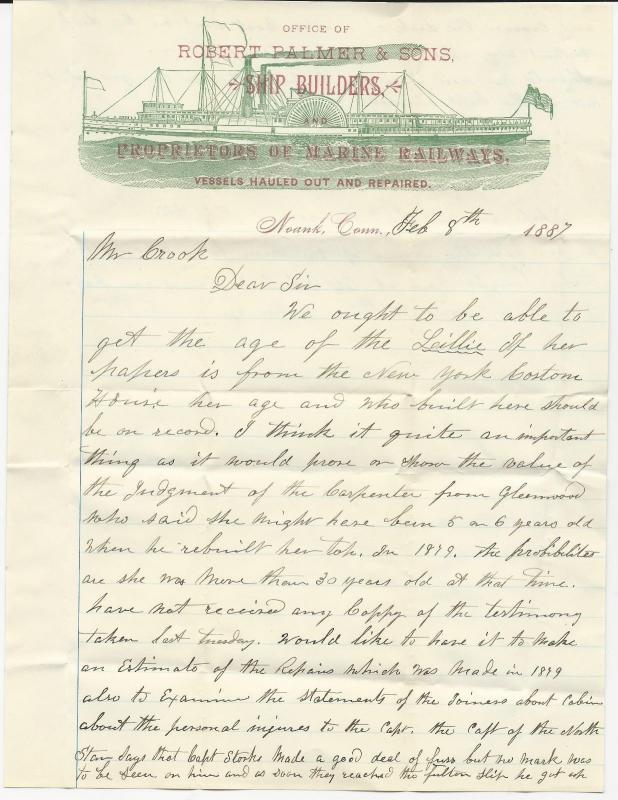 OFFICE OF
ROBERT PALMER & SONS,
SHIP BUILDERS,
AND
PROPRIETORS OF MARINE RAILWAYS,
VESSELS HAULED OUT AND REPAIRED.
Noank, Conn., Feb 8th 1887
Mr Crook
Dear Sir
We ought to be able to
get the age of the Lillie If her
papers is from the New York Costom
House, her age and who built here should
be on record. I think it quite an important
thing as it would prove or show the value of
the Judgment of the Carpenter from Gleenwood
who said she might have been 5 or 6 years old
when he rebuilt her top. In 1879. the probibilites
are she was more than 30 years old at that time.
have not received any Coppy of the testimony
taken last tuesday. Would like to have it to make
an Estimate of the Repairs which was made in 1879
also to Examine the statements of the Joiners about Cabin
about the personal injures to the Capt. the Capt of the North
Star says that Capt made a good deal of fuss but no mark was
to be seen on him and as soon they reached the fulton slip he got